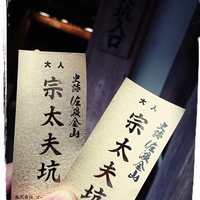 大人
史跡 佐渡金山
宗太夫坑
大人
史跡 佐渡金山
宗太夫坑